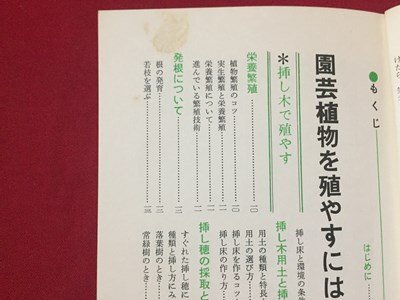 ●もくじ
はじめに
園芸植物を殖やすには
＊挿し木で殖やす
栄養繁殖
植物繁殖のコツ……一〇
実生繁殖と栄養繁殖……一〇
栄養繁殖について……一一
進んでいる繁殖技術……一一
発根について
根の発育……一二
若枝を選ぶ……一三
挿し床と環境の条
挿し木用土と挿
用土の種類と特長
用土の選び方
挿し床を作るコツ
挿し床の作り方
挿し穂の採取と
すぐれた挿し穂に
種類と挿し方にみ
落葉樹のとき
常緑樹のとき